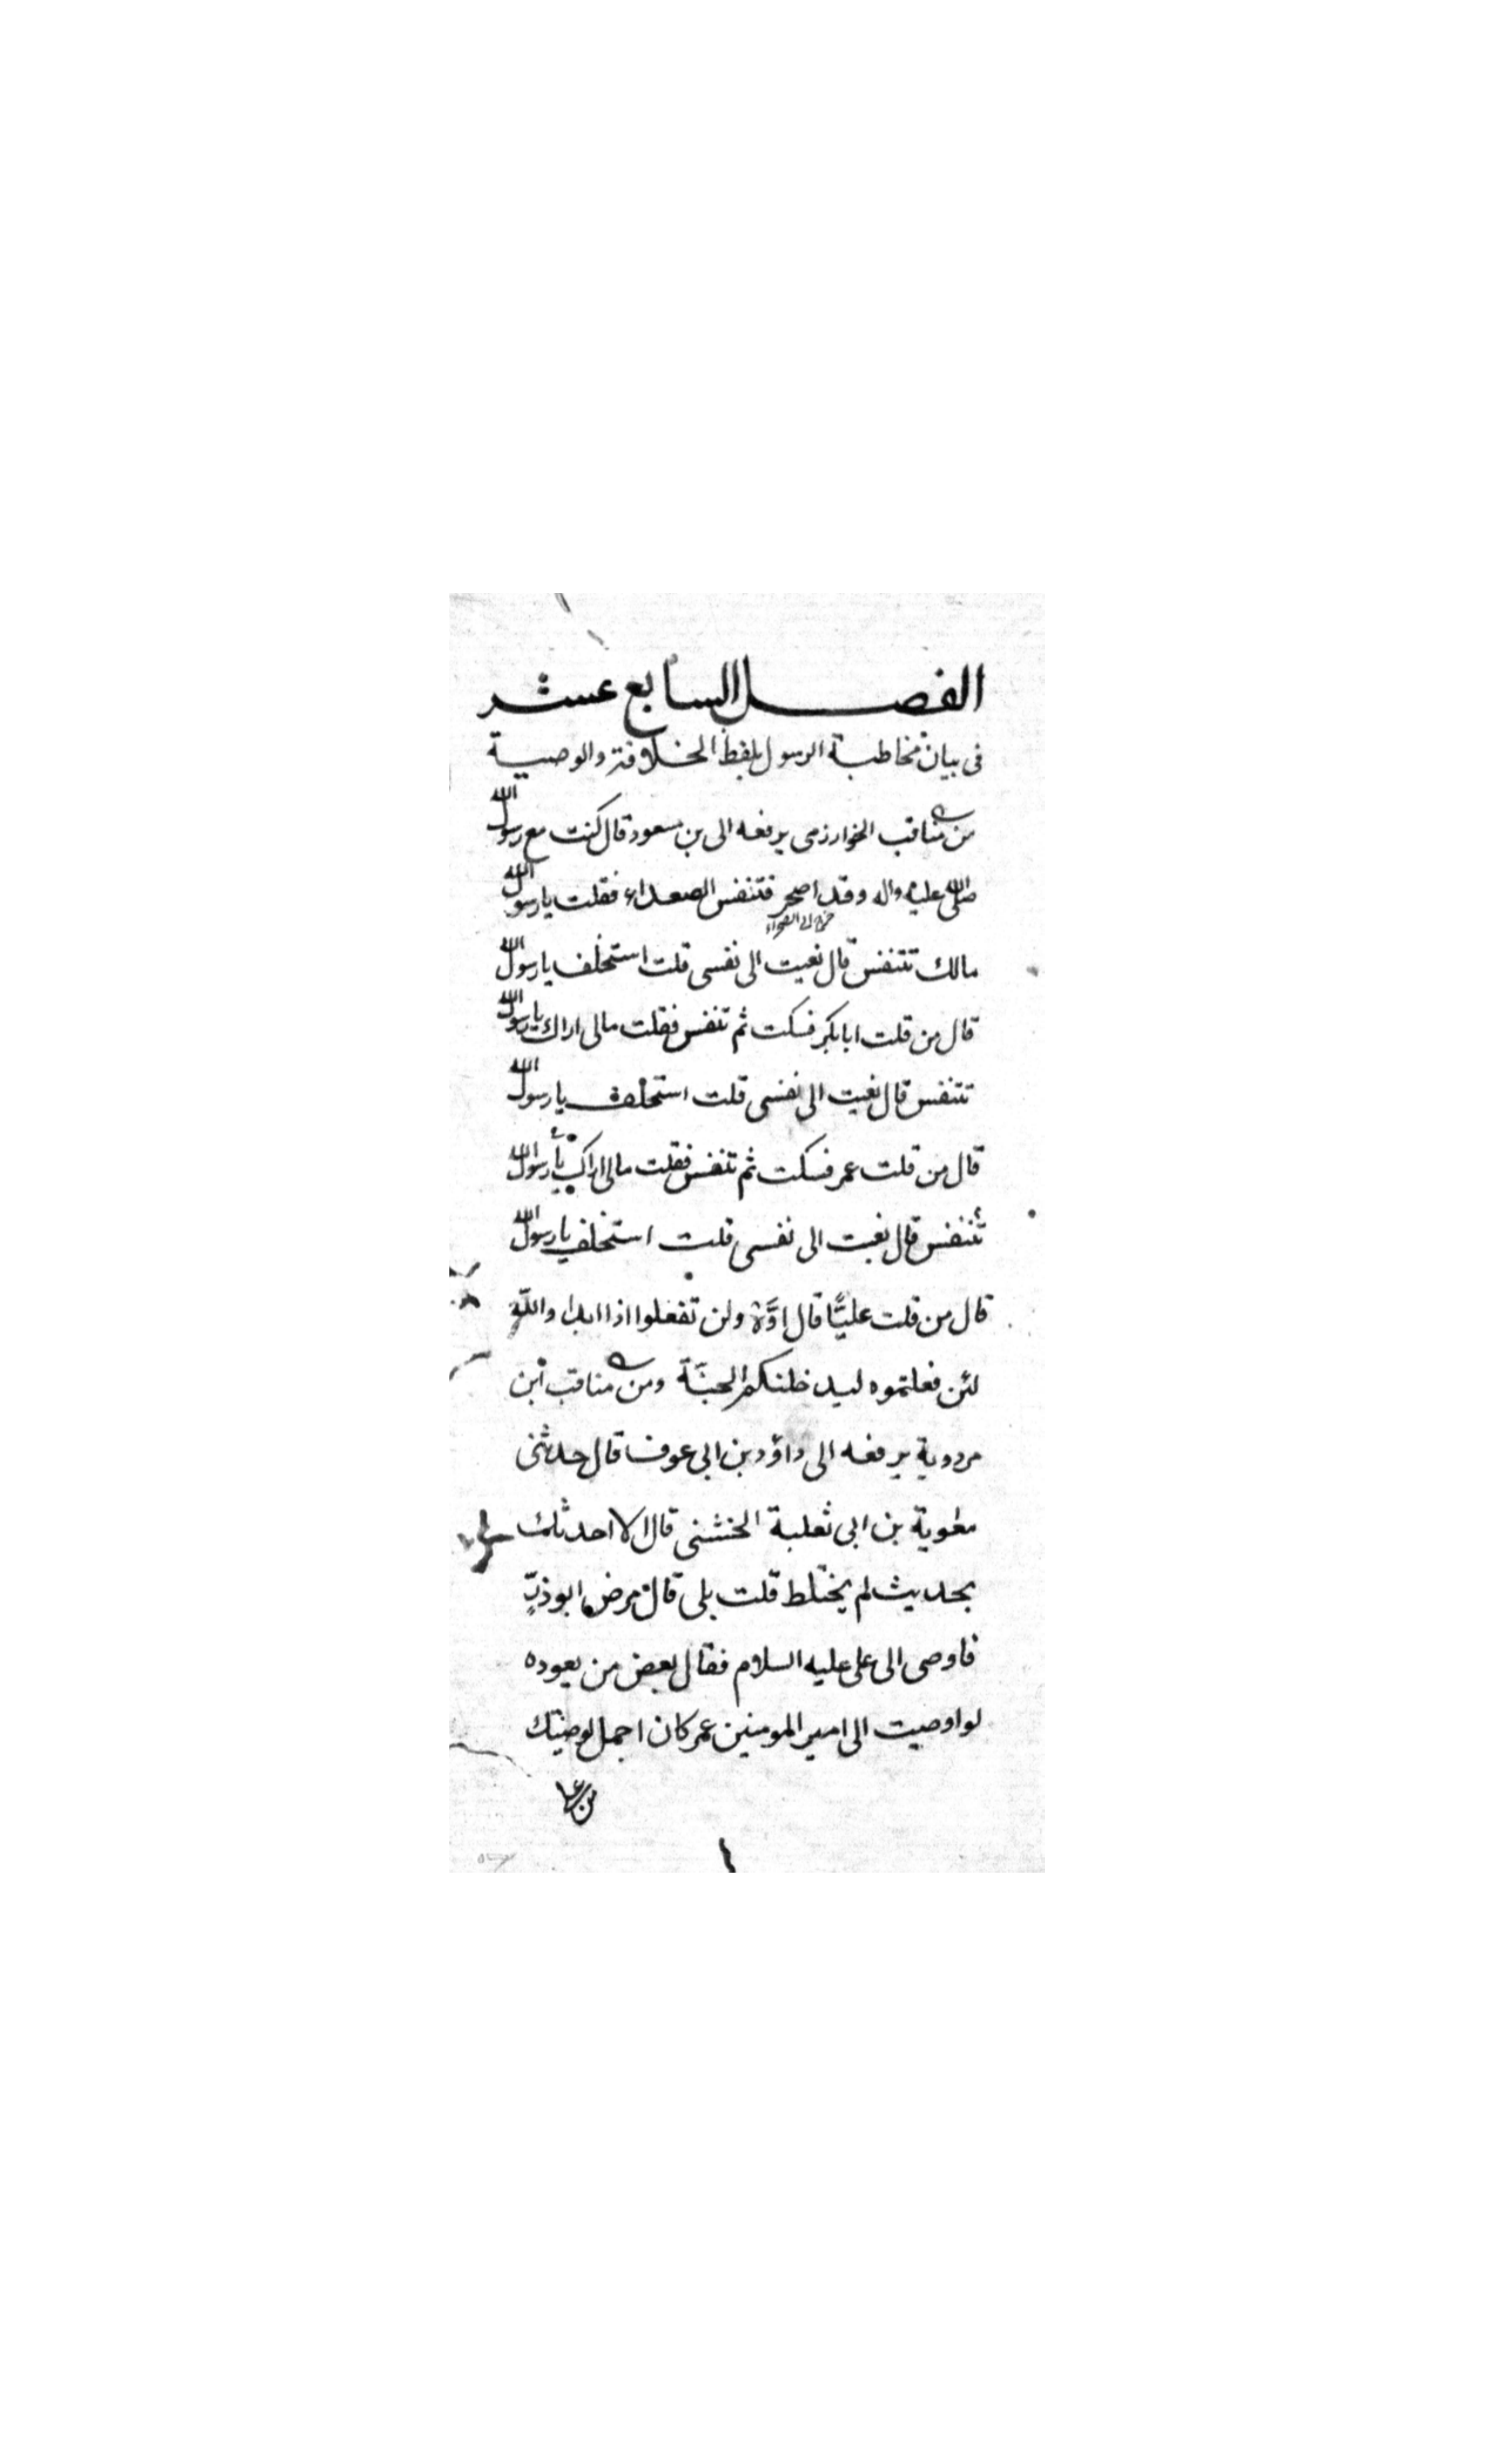 الفصل السابع عشر
فى بيان مخاطبة الرسول بلفظ الخلافة والوصية
من مناقب الخوارزمى يرفعه الى بن مسعود قال كنت مع رسول الله
صلى الله عليه واله وقد اصحر فتنفس الصعداء فقلت يا رسول الله
خرج الى الصحراء
مالك تتنفس قال نعيت الى نفسى قلت استخلف يا رسول الله
قال من قلت ابابكر فسكت ثم تنفس فقلت مالى اراك يا رسول الله
تتنفس قال نعيت الى نفسى قلت استخلف يا رسول الله
قال من قلت عمر فسكت ثم تنفس فقلت مالى اراك يا رسول الله
تتنفس قال نعيت الى نفسى قلت استخلف يا رسول الله
قال من قلت عليًّا قال اوَّه ولن تفعلوا اذا ابدا والله
لئن فعلتموه ليدخلنكم الجنّة ومن مناقب ابن
مردوية يرفعه الى داؤد بن ابى عوف قال حدثنى
معوية بن ابى ثعلبة الخشنى قال الا احدثك
بحديث لم يختلط قلت بلى قال مرض ابوذرّ
فاوصى الى على عليه السلام فقال بعض من يعوده
لو اوصيت الى امير المومنين عمر كان اجمل لوصيتك
من على